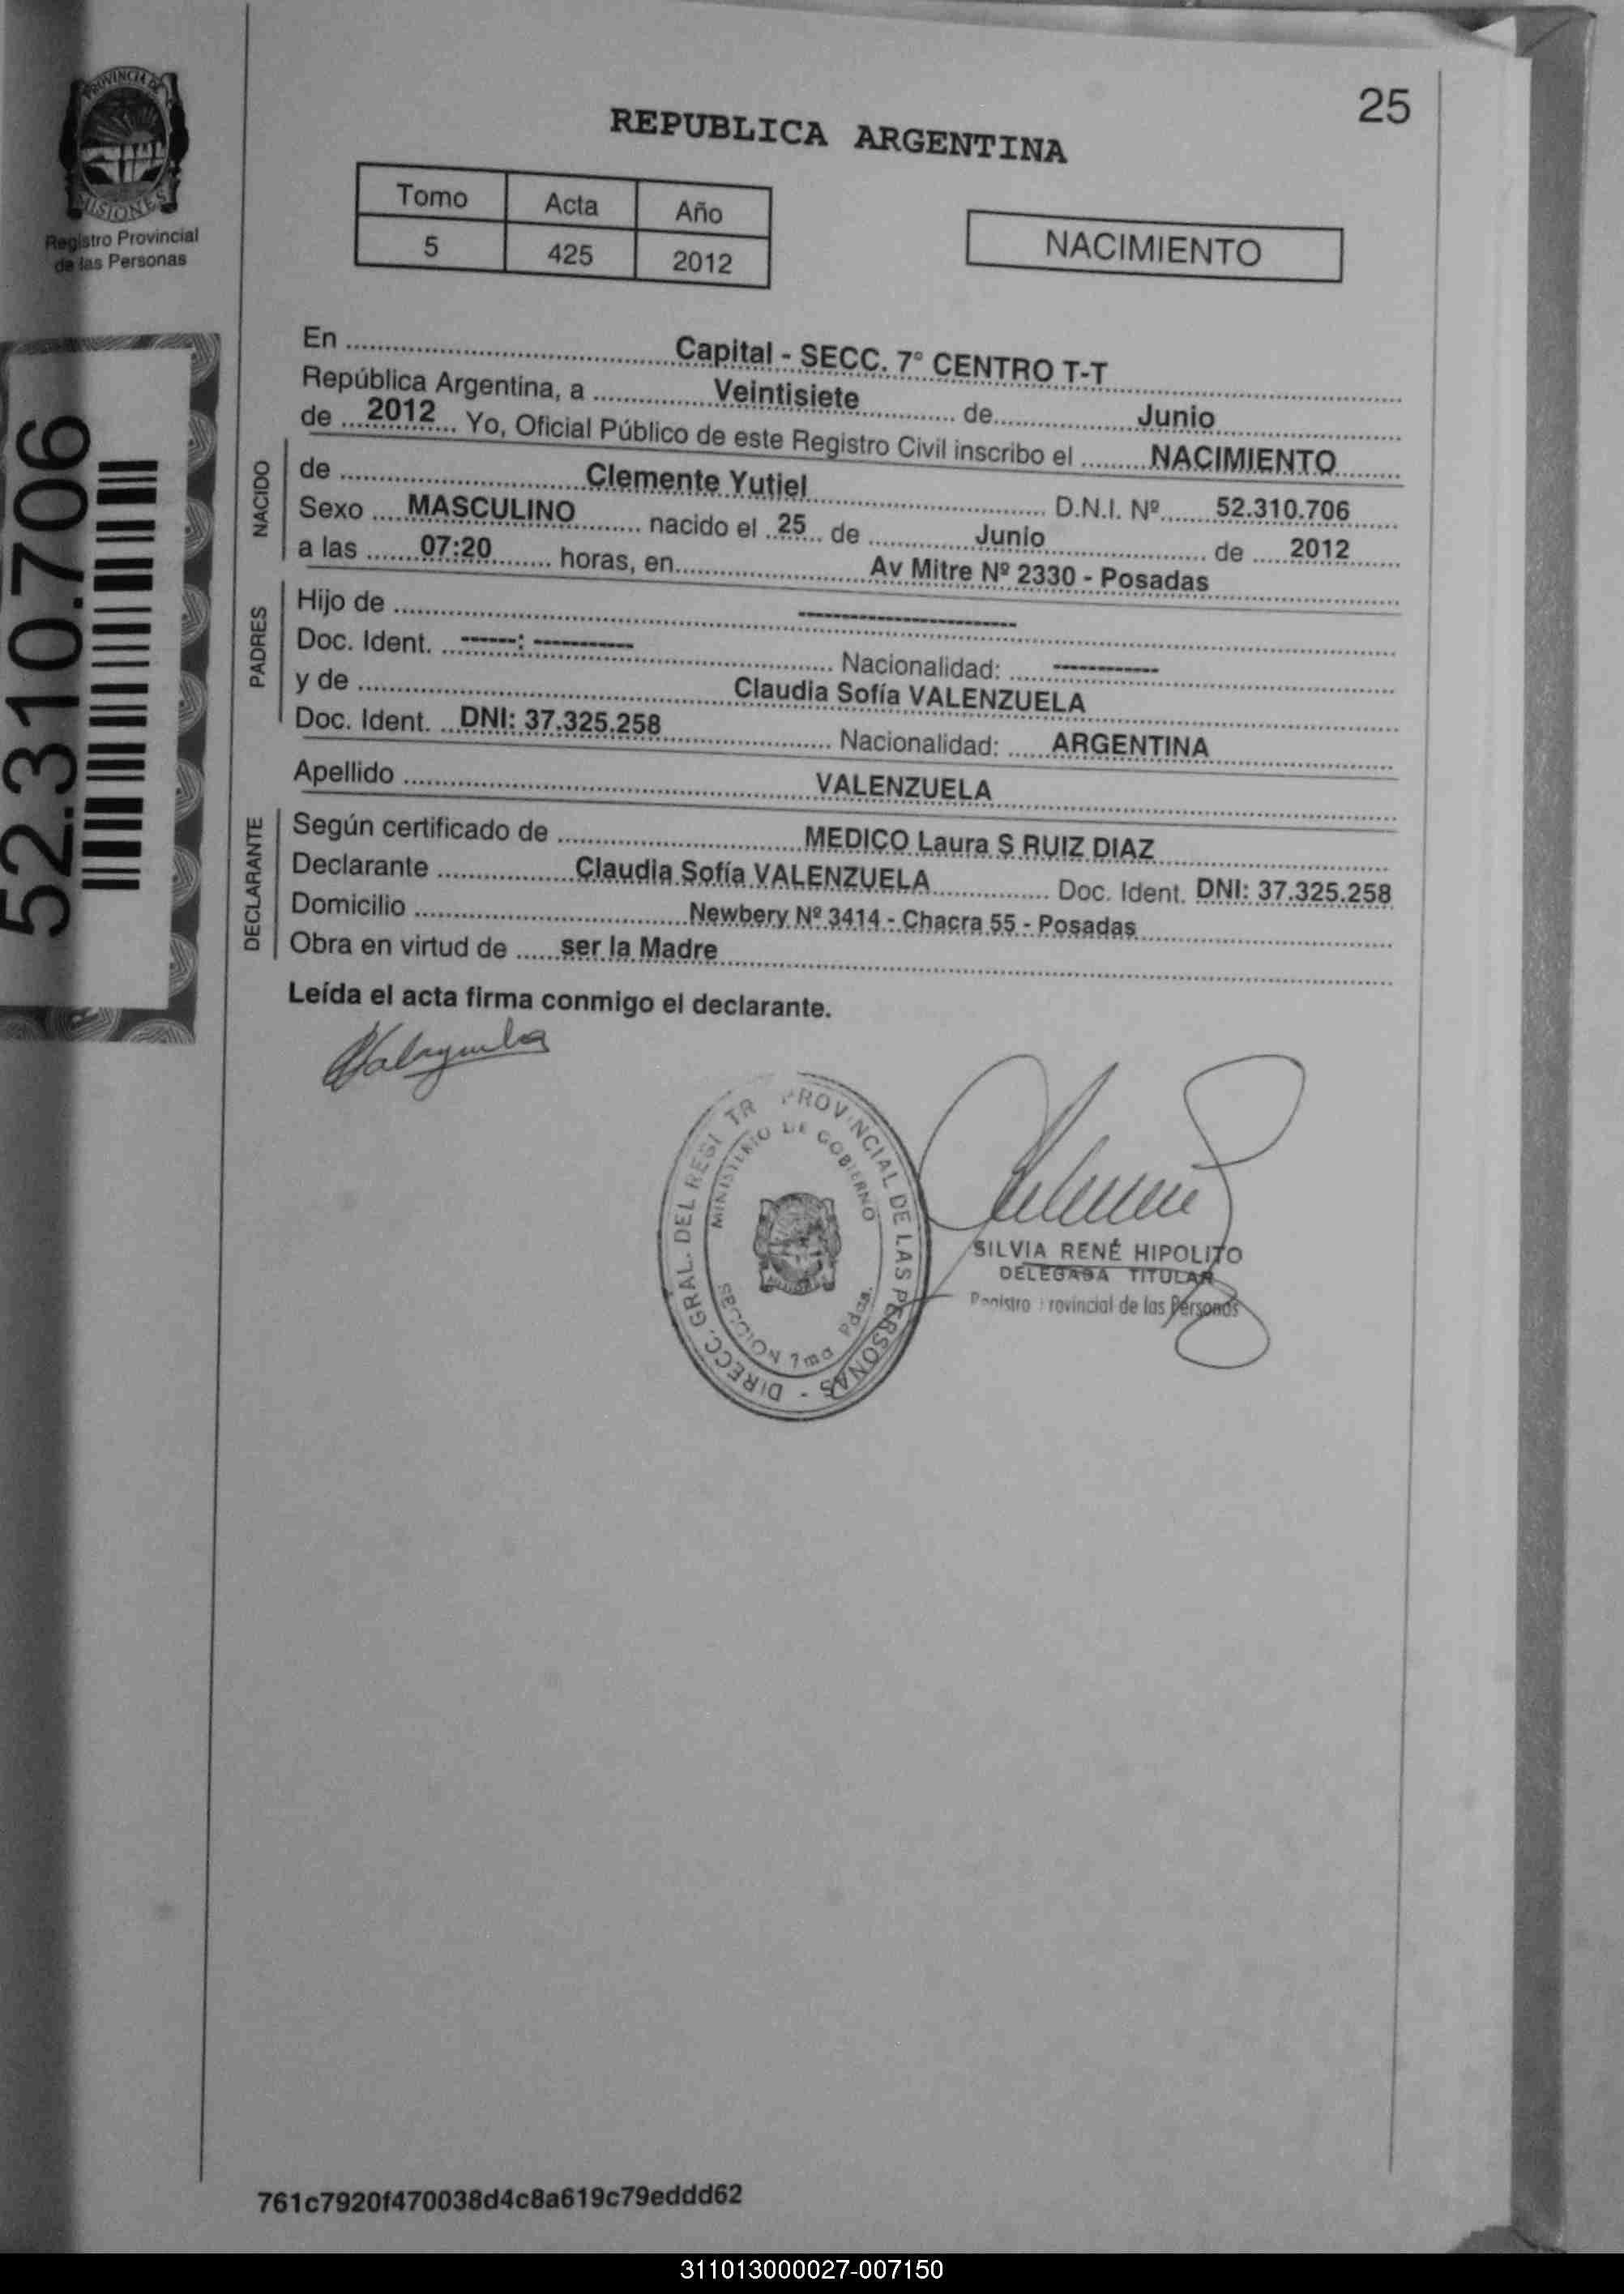 25
REPUBLICA ARGENTINA
PROVINCIA DE
MISIONES
Registro Provincial
de las Personas
Tomo Acta Año
5 425 2012
NACIMIENTO
52.310.706
En Capital - SECC. 7° CENTRO T-T
República Argentina, a Veintisiete de Junio
de 2012 Yo, Oficial Público de este Registro Civil inscribo el NACIMIENTO
NACIDO
de Clemente Yutiel D.N.I. Nº 52.310.706
Sexo MASCULINO nacido el 25 de Junio de 2012
a las 07:20 horas, en Av Mitre Nº 2330 - Posadas
PADRES
Hijo de --------------------
Doc. Ident. ------: ---------- Nacionalidad: -----------
y de Claudia Sofía VALENZUELA
Doc. Ident. DNI: 37.325.258 Nacionalidad: ARGENTINA
Apellido VALENZUELA
DECLARANTE
Según certificado de MEDICO Laura S RUIZ DIAZ
Declarante Claudia Sofía VALENZUELA Doc. Ident. DNI: 37.325.258
Domicilio Newbery Nº 3414 - Chacra 55 - Posadas
Obra en virtud de ser la Madre
Leída el acta firma conmigo el declarante.
DIRECC. GRAL. DEL REGISTR PROVINCIAL DE LAS PERSONAS -
MINISTERIO DE GOBIERNO
SECCION 7ma Pdas.
SILVIA RENÉ HIPOLITO
DELEGADA TITULAR
Registro Provincial de las Personas
761c7920f470038d4c8a619c79eddd62
311013000027-007150